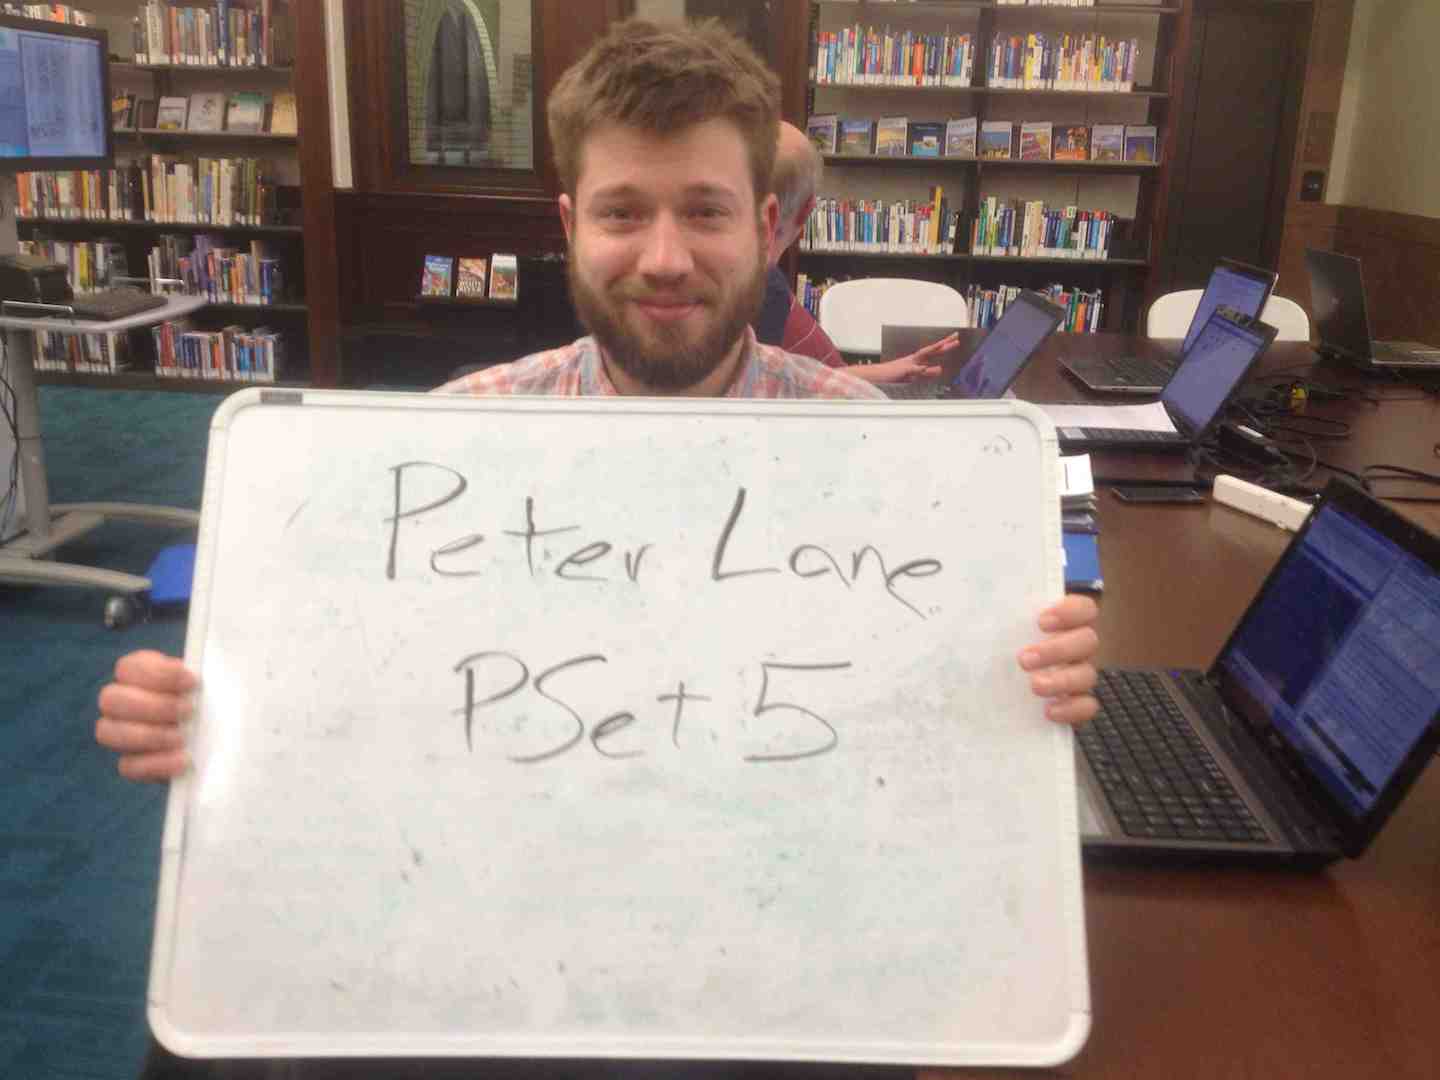 Peter Lane
PSet 5